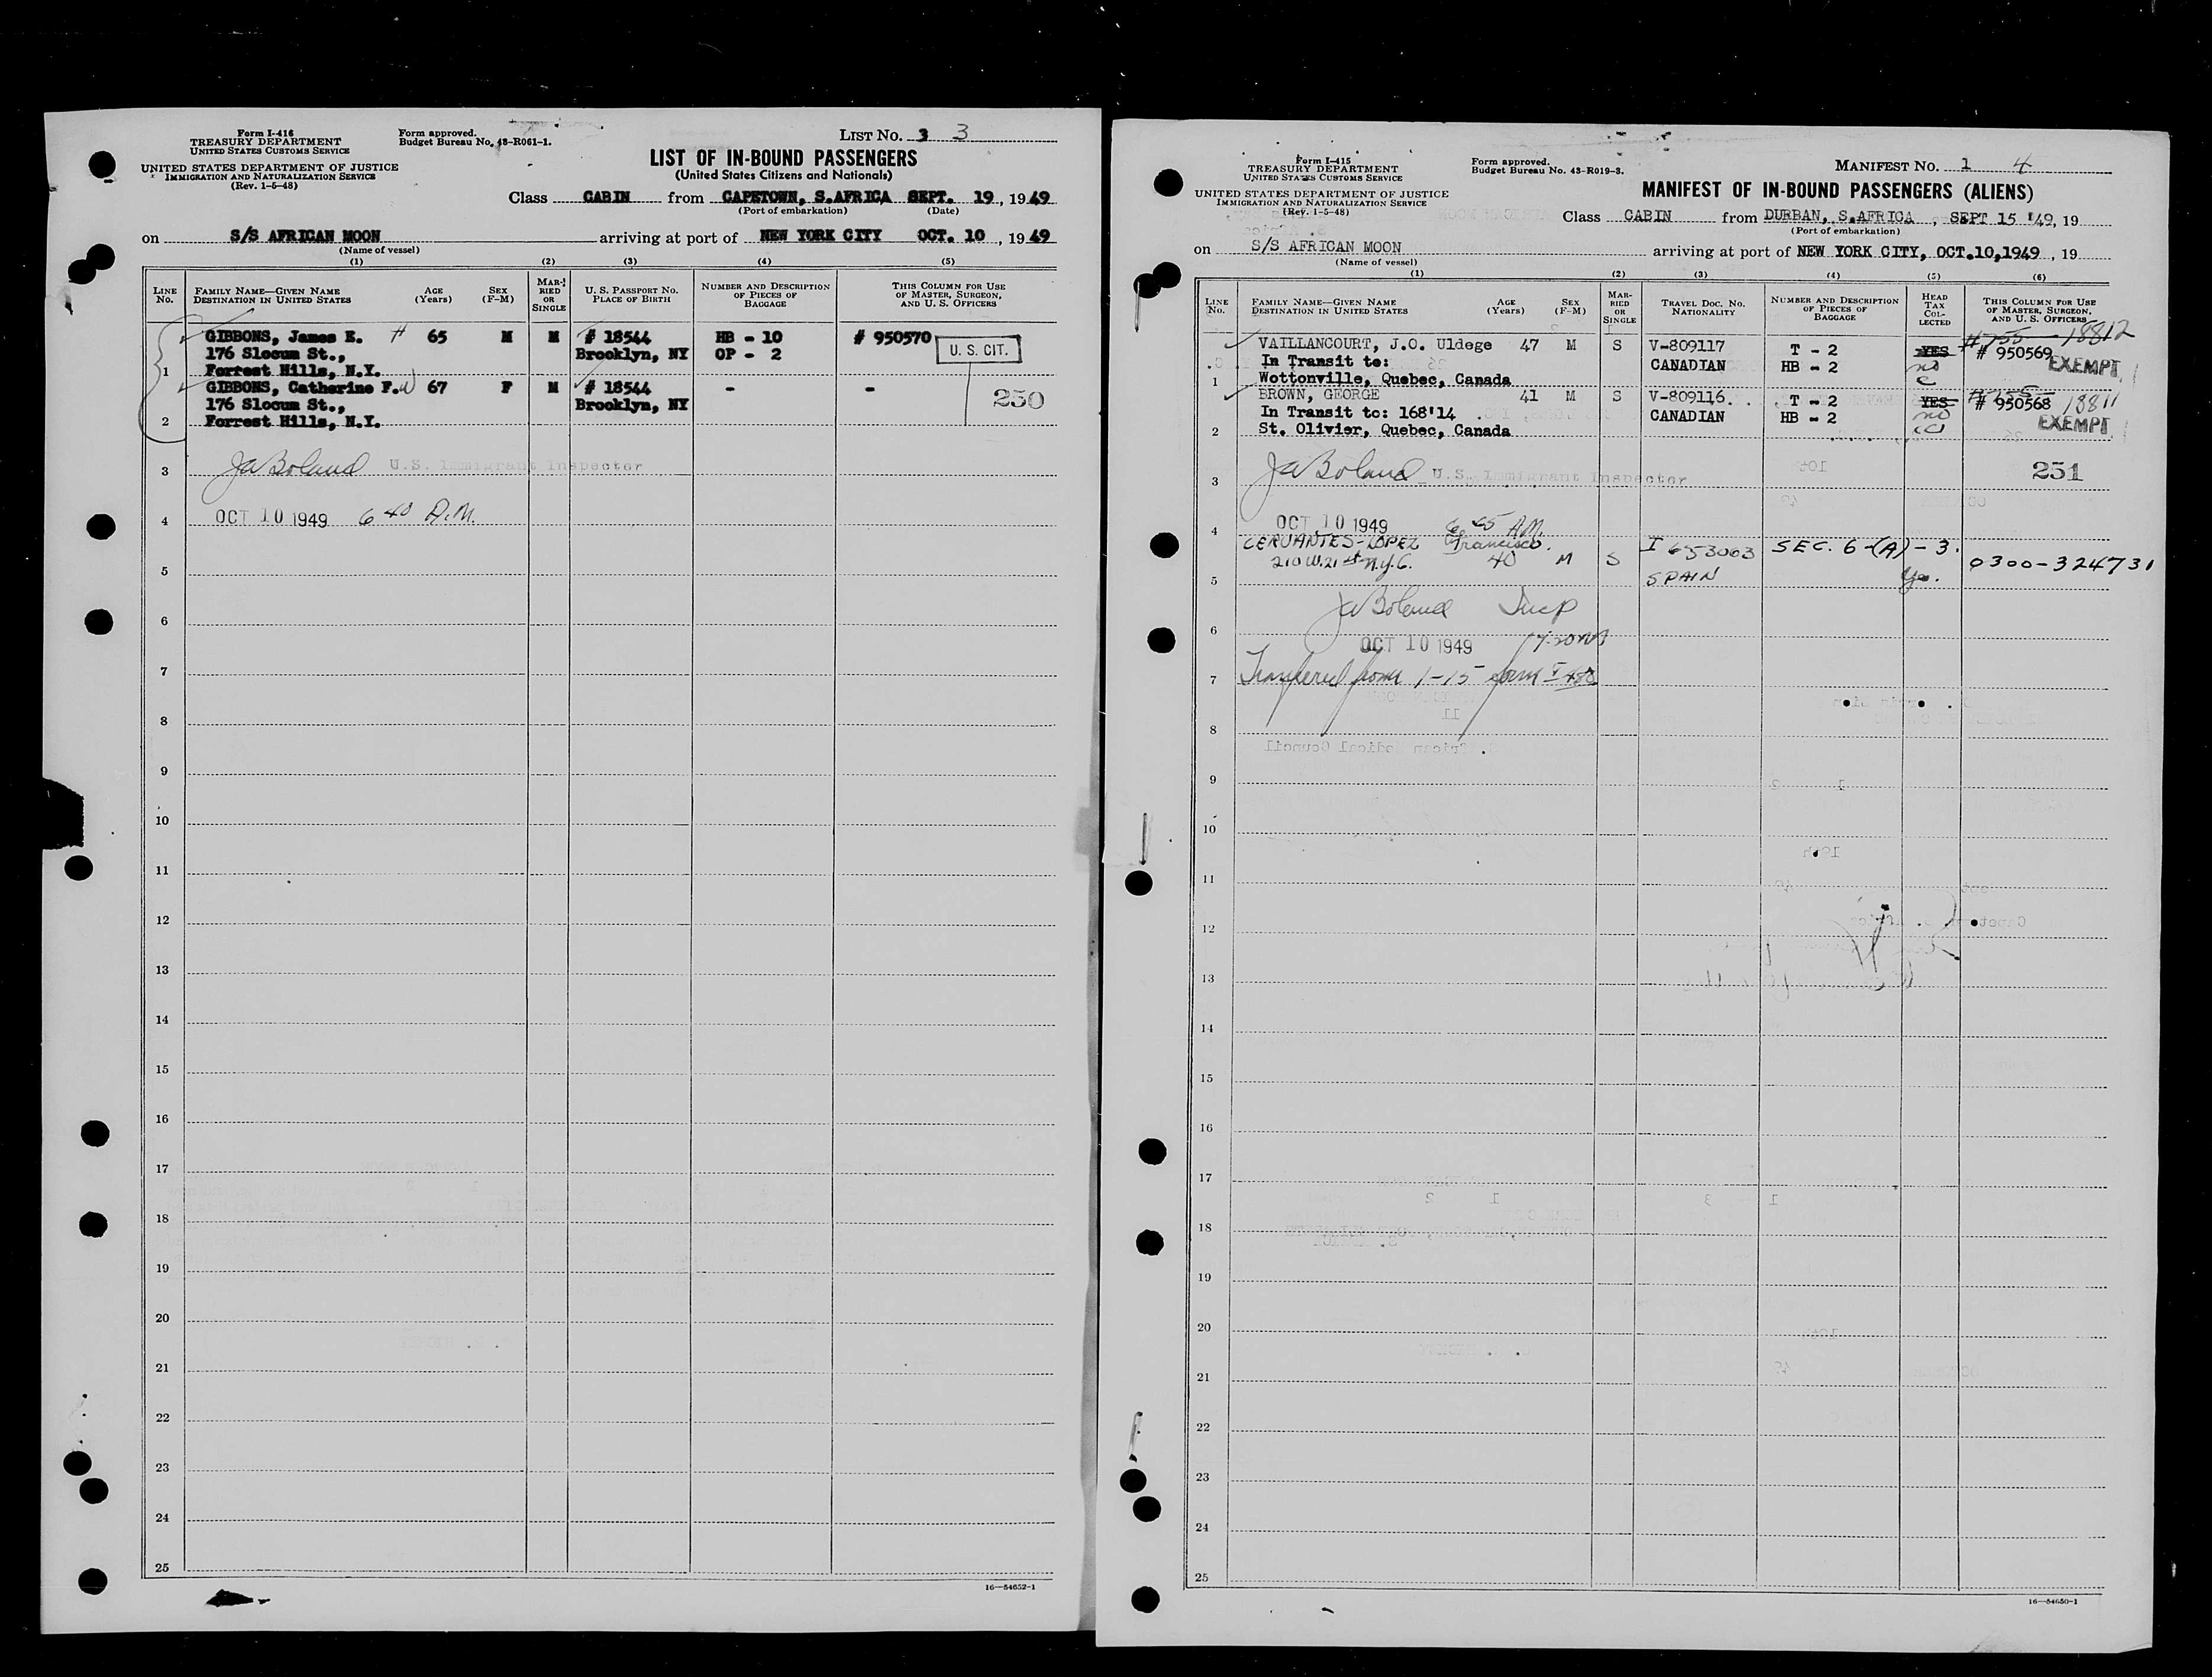 Form I-416
TREASURY DEPARTMENT
UNITED STATES CUSTOMS SERVICE
UNITED STATES DEPARTMENT OF JUSTICE
IMMIGRATION AND NATURALIZATION SERVICE
(Rev. 1-5-48)
Form approved.
Budget Bureau No. 43-R061-1.
LIST NO. 3 3
LIST OF IN-BOUND PASSENGERS
(United States Citizens and Nationals)
Class CABIN from CAPETOWN, S.AFRICA SEPT. 19, 1949
(Port of embarkation) (Date)
on S/S AFRICAN MOON arriving at port of NEW YORK CITY OCT. 10, 1949
(Name of vessel)
(1) (2) (3) (4) (5)
LINE No. FAMILY NAME—GIVEN NAME DESTINATION IN UNITED STATES AGE (Years) SEX (F-M) MARRIED OR SINGLE U. S. PASSPORT NO. PLACE OF BIRTH NUMBER AND DESCRIPTION OF PIECES OF BAGGAGE THIS COLUMN FOR USE OF MASTER, SURGEON, AND U. S. OFFICERS
GIBBONS, James E. H 65 M M # 18544 HB - 10 # 950570
176 Slocum St., Brooklyn, NY OP - 2 U. S. CIT.
1 Forrest Hills, N.Y.
GIBBONS, Catherine F. W 67 F M # 18544 - -
176 Slocum St., Brooklyn, NY 250
2 Forrest Hills, N.Y.
3 JA Boland U.S. Immigrant Inspector
4 OCT 10 1949 6 40 A.M.
5
6
7
8
9
10
11
12
13
14
15
16
17
18
19
20
21
22
23
24
25
16—54652-1
Form I-415
TREASURY DEPARTMENT
UNITED STATES CUSTOMS SERVICE
UNITED STATES DEPARTMENT OF JUSTICE
IMMIGRATION AND NATURALIZATION SERVICE
(Rev. 1-5-48)
Form approved.
Budget Bureau No. 43-R019-3.
MANIFEST NO. 1 4
MANIFEST OF IN-BOUND PASSENGERS (ALIENS)
Class CABIN from DURBAN, S.AFRICA, SEPT 15 '49, 19
(Port of embarkation)
on S/S AFRICAN MOON arriving at port of NEW YORK CITY, OCT.10,1949, 19
(Name of vessel)
(1) (2) (3) (4) (5) (6)
LINE No. FAMILY NAME—GIVEN NAME DESTINATION IN UNITED STATES AGE (Years) SEX (F-M) MARRIED OR SINGLE TRAVEL DOC. NO. NATIONALITY NUMBER AND DESCRIPTION OF PIECES OF BAGGAGE HEAD TAX COLLECTED THIS COLUMN FOR USE OF MASTER, SURGEON, AND U. S. OFFICERS
#755 18812
VAILLANCOURT, J.O. Uldege 47 M S V-809117 T - 2 YES # 950569
In Transit to: CANADIAN HB - 2 no EXEMPT
1 Wottonville, Quebec, Canada C
BROWN, GEORGE 41 M S V-809116 T - 2 YES # 950568 18811
In Transit to: 168'14 CANADIAN HB - 2 no EXEMPT
2 St. Olivier, Quebec, Canada
3 JA Boland U.S. Immigrant Inspector 251
4 OCT 10 1949 A.M.
CERVANTES-LOPEZ Francisco. I 653063 SEC. 6-(A)-3.
210 W. 21 st N.Y.C. 40 M S SPAIN Yes. 0300-324731
5
JA Boland Insp
6 OCT 10 1949
7 Transferred from 1-15 form I 480
8
9
10
11
12
13
14
15
16
17
18
19
20
21
22
23
24
25
16—54650-1